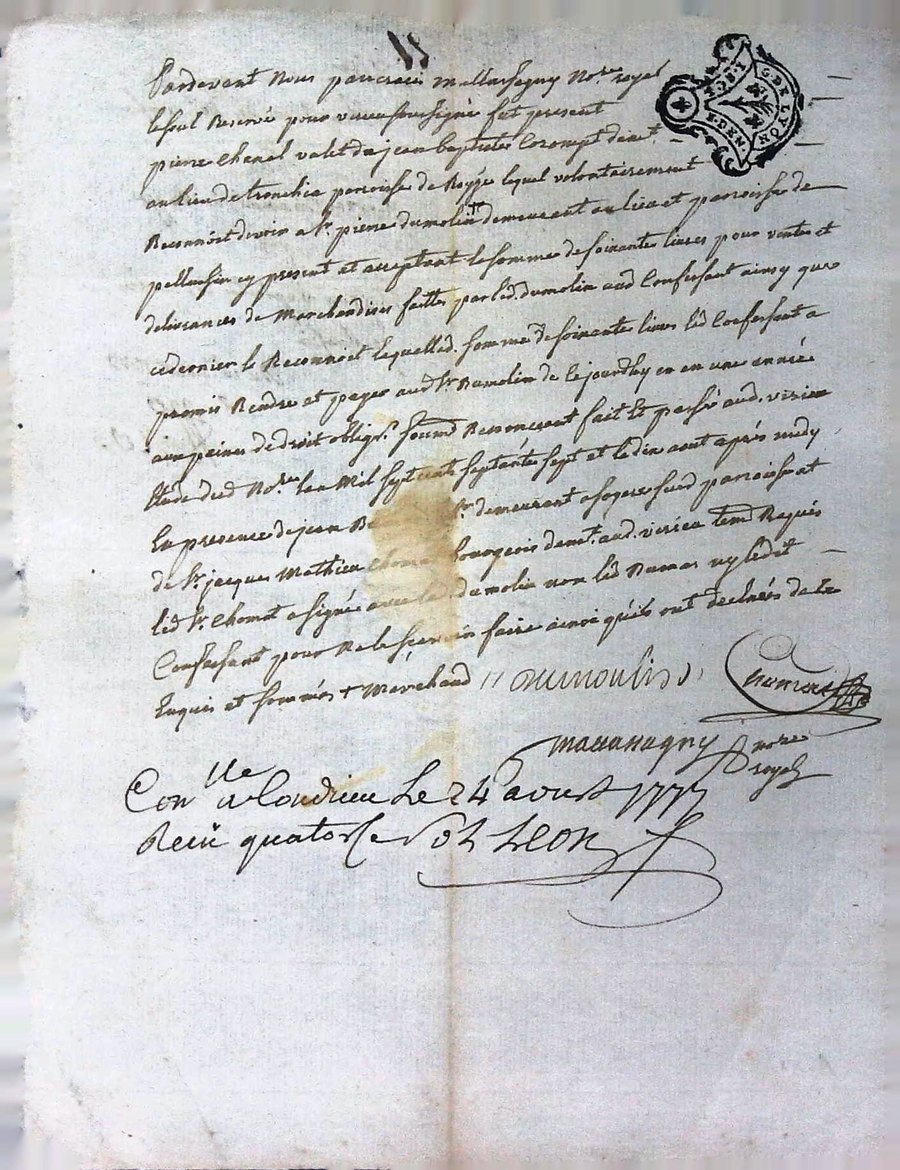 Pardevant Nous pancrace mallassagny Nore royal
le seul Reservé pour virieu soussigné fut present
pierre Chanal valet du jean baptiste Corompt demt.
au lieu de tronchia paroisse de Roysse lequel volontairement
Reconnoit devoir a sr. pierre dumolin + demeurant au lieu et parroisse de
pellussin cy present et acceptant la somme de soixantes livres pour ventes et
delivrances de Marchandises faittes par led. dumolin aud Confessant ainsy que
ce dernier le Reconnoit laquelle d. somme de soixantes livres led Confessant a
promis Rendre et payer aud sr Dumolin de ce jourdhuy en en une année
aux peines de droit oblign. soumn Renoncent fait Et passé aud. virieu
Etude dud Nore lan Mil sept cents septantes sept et le dix aout après midy
En presence de jean demeurant a sur d parroisse et
de sr. jacques Mathieu Chomat bourgeois demt. aud. virieu temd Requis
led sr. Chomat a signé avec led dumolin non led Dumas ny ledit
Confessant pour ne le scavoir faire ainsi quils ont declarés de ce
Enquis et sommés + Marchand Dumoulin Chomat
mallassagny nore
royal
Conlle a Condrieu Le 24 aoust 1777
Reçu quatorse sols Leon
G. DE LYON